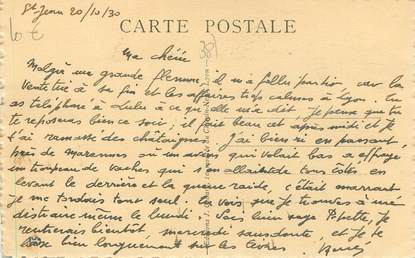 St Jean 20/10/30
10 €
CARTE POSTALE
38
Ma chérie
Malgré une grande flemme il m'a fallu partir car la
vente tire à sa fin et les affaires très calmes à Lyon. Tu
as téléphoné à Lulu à ce que elle m'a dit. Je pense que tu
te reposeras bien ce soir, il fait beau cet après midi et je
t'ai ramassé des châtaignes. J'ai bien ri en passant,
près de Marennes où un avion qui volait bas a effrayé
un troupeau de vaches qui s'en allait de tous côtés en
levant le derrière et la queue raide, c'était marrant
je me tordais tout seul. Tu vois que je trouve à me
distraire même le lundi. Sois bien sage Ptette, je
rentrerai bientôt mercredi sans doute, et je te
bise bien longuement sur les lèvres.